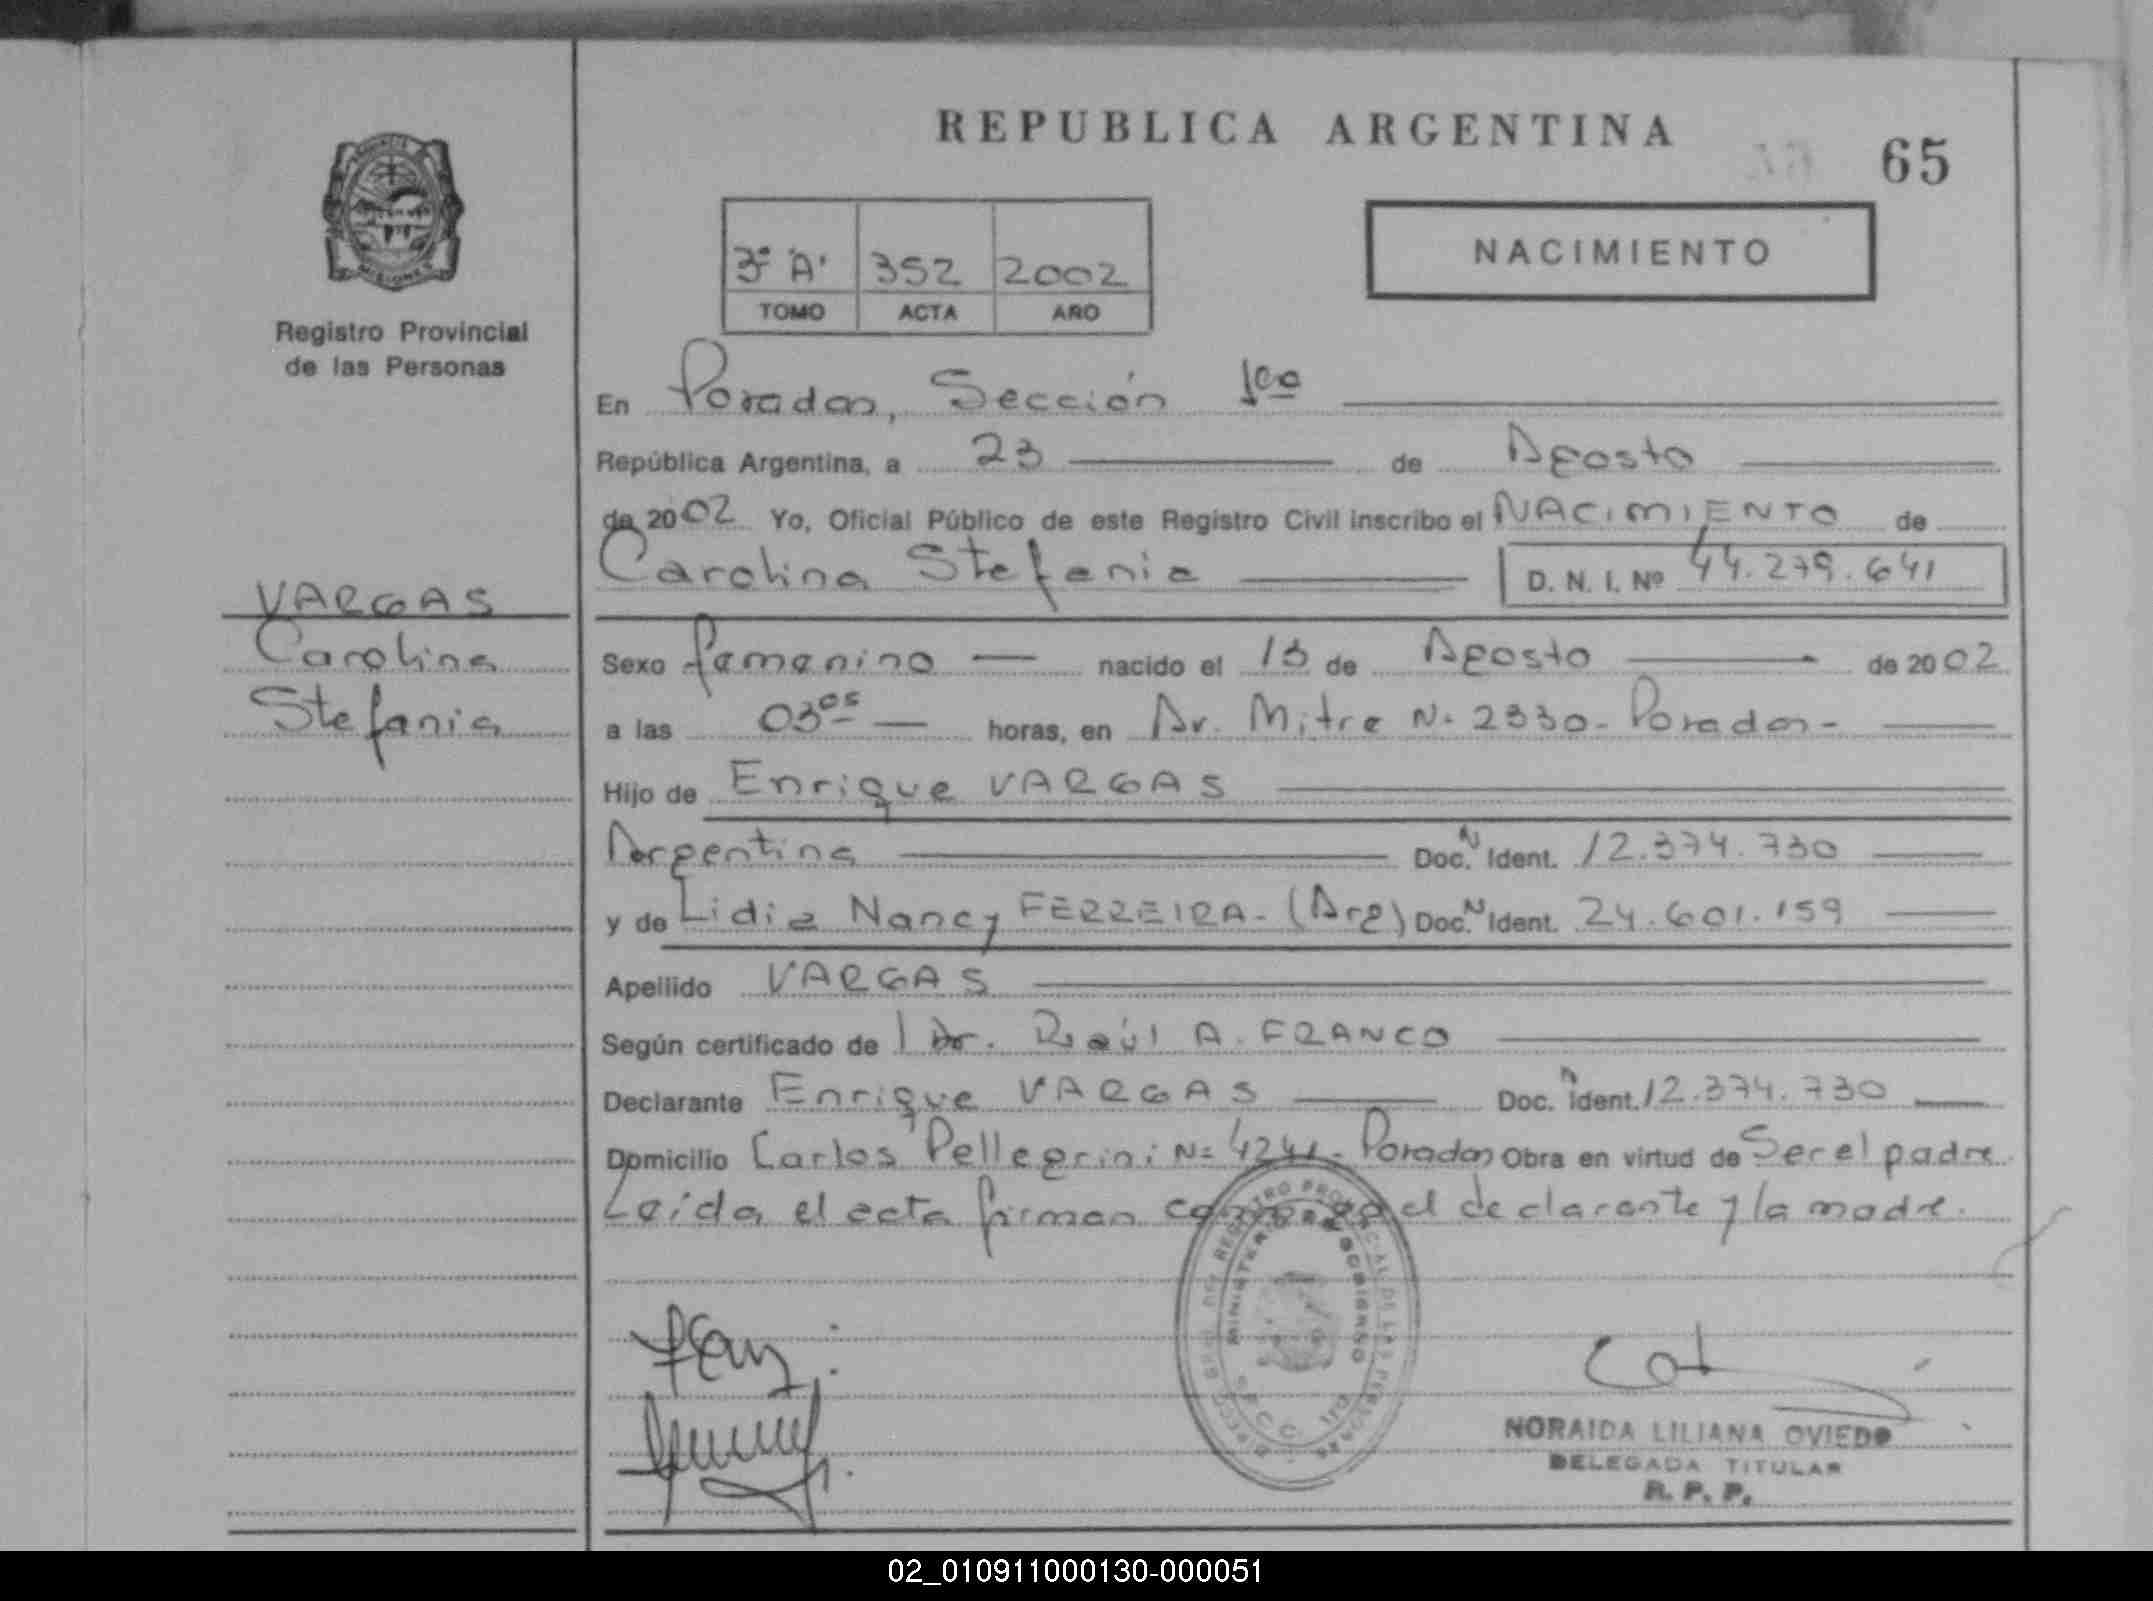 REPUBLICA ARGENTINA
65
3º "A" 352 2002
TOMO ACTA AÑO
NACIMIENTO
Registro Provincial
de las Personas
En Posadas, Sección 1ra
República Argentina, a 23 de Agosto
de 2002 Yo, Oficial Público de este Registro Civil inscribo el NACIMIENTO de
Carolina Stefania D. N. I. Nº 44.279.641
VARGAS
Carolina
Stefania
Sexo femenino nacido el 13 de Agosto de 2002
a las 03 05 horas, en Av. Mitre Nº 2330 - Posadas -
Hijo de Enrique VARGAS
Argentina Doc. N Ident. 12.374.730
y de Lidia Nancy FERREIRA - (Arg) Doc. N Ident. 24.601.159
Apellido VARGAS
Según certificado de Dr. Raúl A. FRANCO
Declarante Enrique VARGAS Doc. N Ident. 12.374.730
Domicilio Carlos Pellegrini Nº 4241 - Posadas Obra en virtud de Ser el padre
Leída el acta firman conmigo el declarante y la madre.
MINISTERIO DE GOBIERNO
NORAIDA LILIANA OVIEDO
DELEGADA TITULAR
R. P. P.
02_010911000130-000051